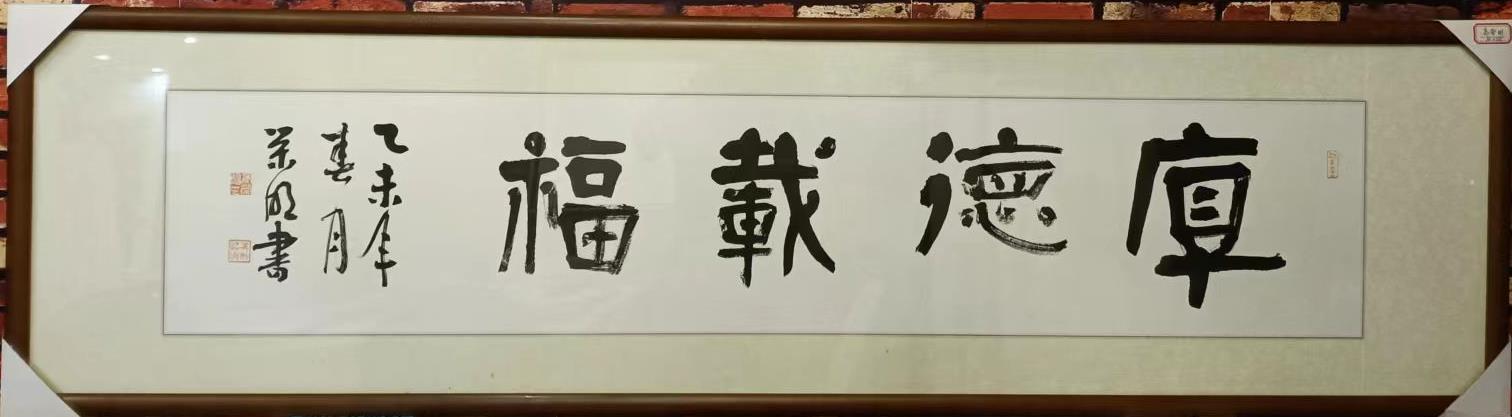 厚德載福
乙未年
春月
荣明書